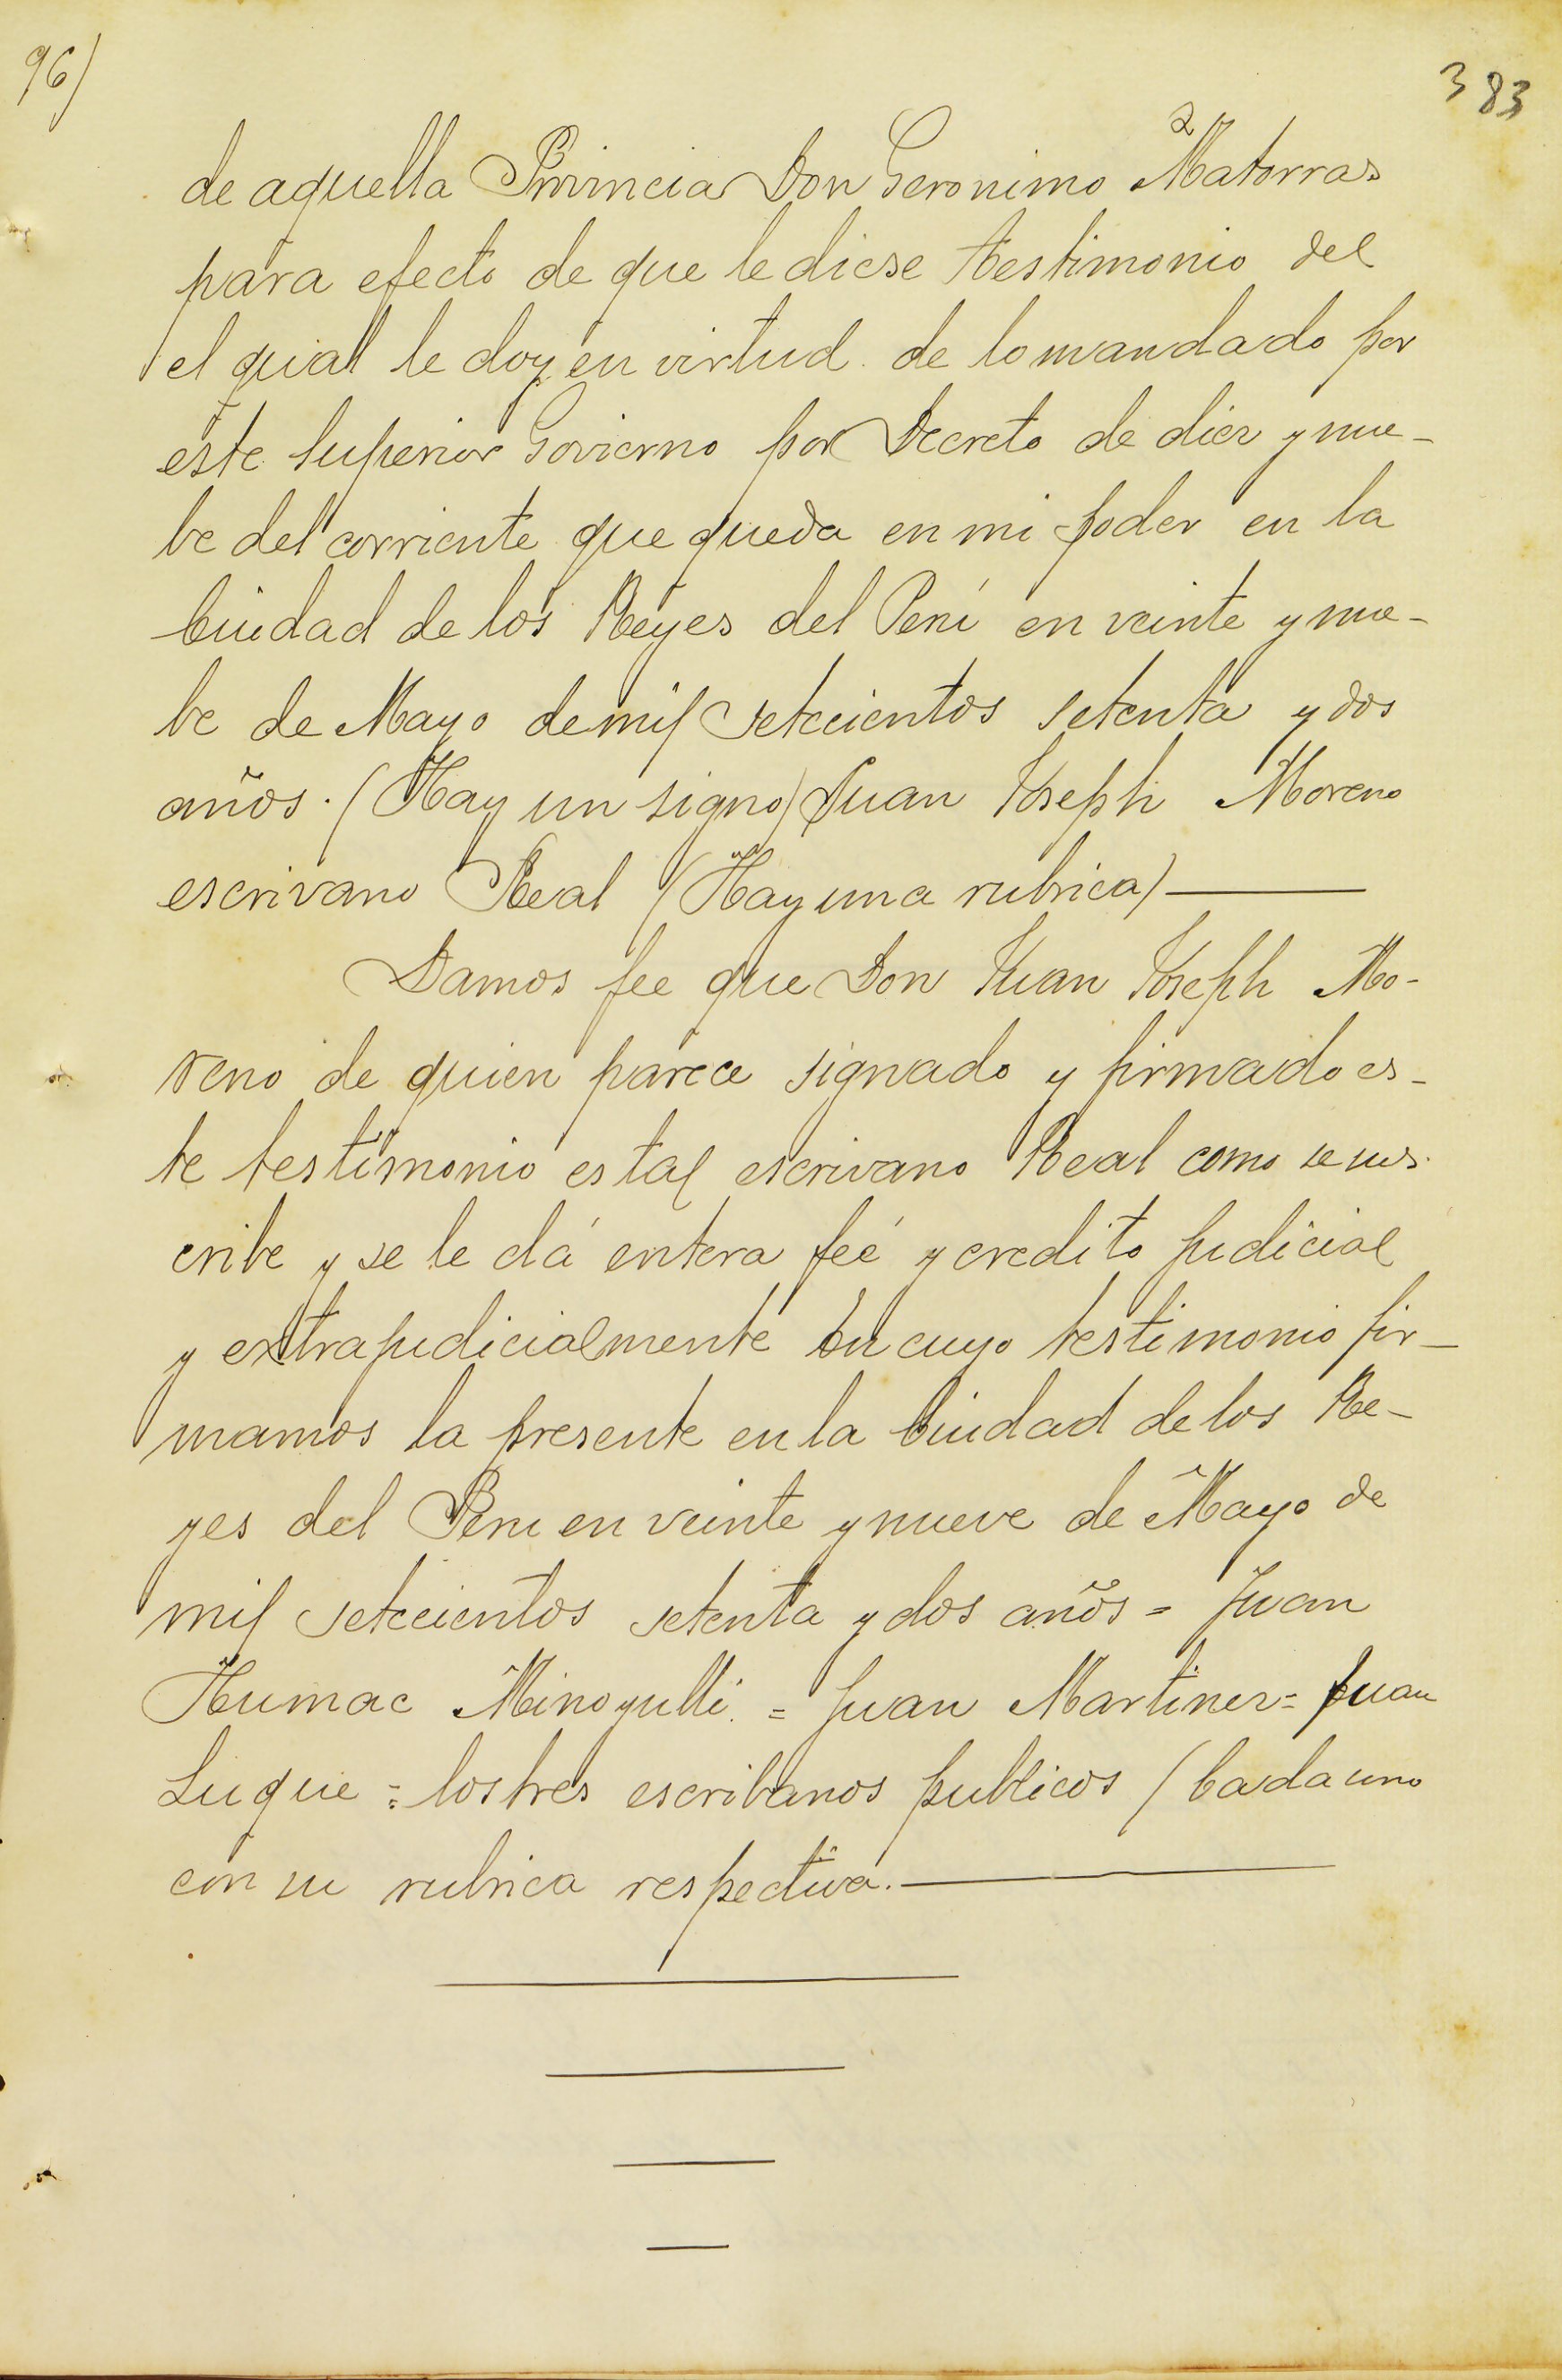 96)
383
de aquella Provincia Don Geronimo Matorras
para efecto de que le diese testimonio del
el qual le doy en virtud de lo mandado por
este Superior Govierno por Decreto de diez y nue-
be del corriente que queda en mi poder en la
Ciudad de los Reyes del Perú en veinte y nue-
be de Mayo de mil setecientos setenta y dos
años. (Hay un signo) Juan Joseph Moreno
escrivano Real (Hay una rubrica)
Damos fee que Don Juan Joseph Mo-
reno de quien parece signado y firmado es-
te testimonio es tal escrivano Real como se sus-
cribe y se le dá entera feé y credito judicial
y extrajudicialmente En cuyo testimonio fir-
mamos la presente en la Ciudad de los Re-
yes del Peru en veinte y nueve de Mayo de
mil setecientos setenta y dos años = Juan
Humac Minoyulli = Juan Martinez = Juan
Luque = los tres escribanos publicos (Cada uno
con su rubrica respectiva.